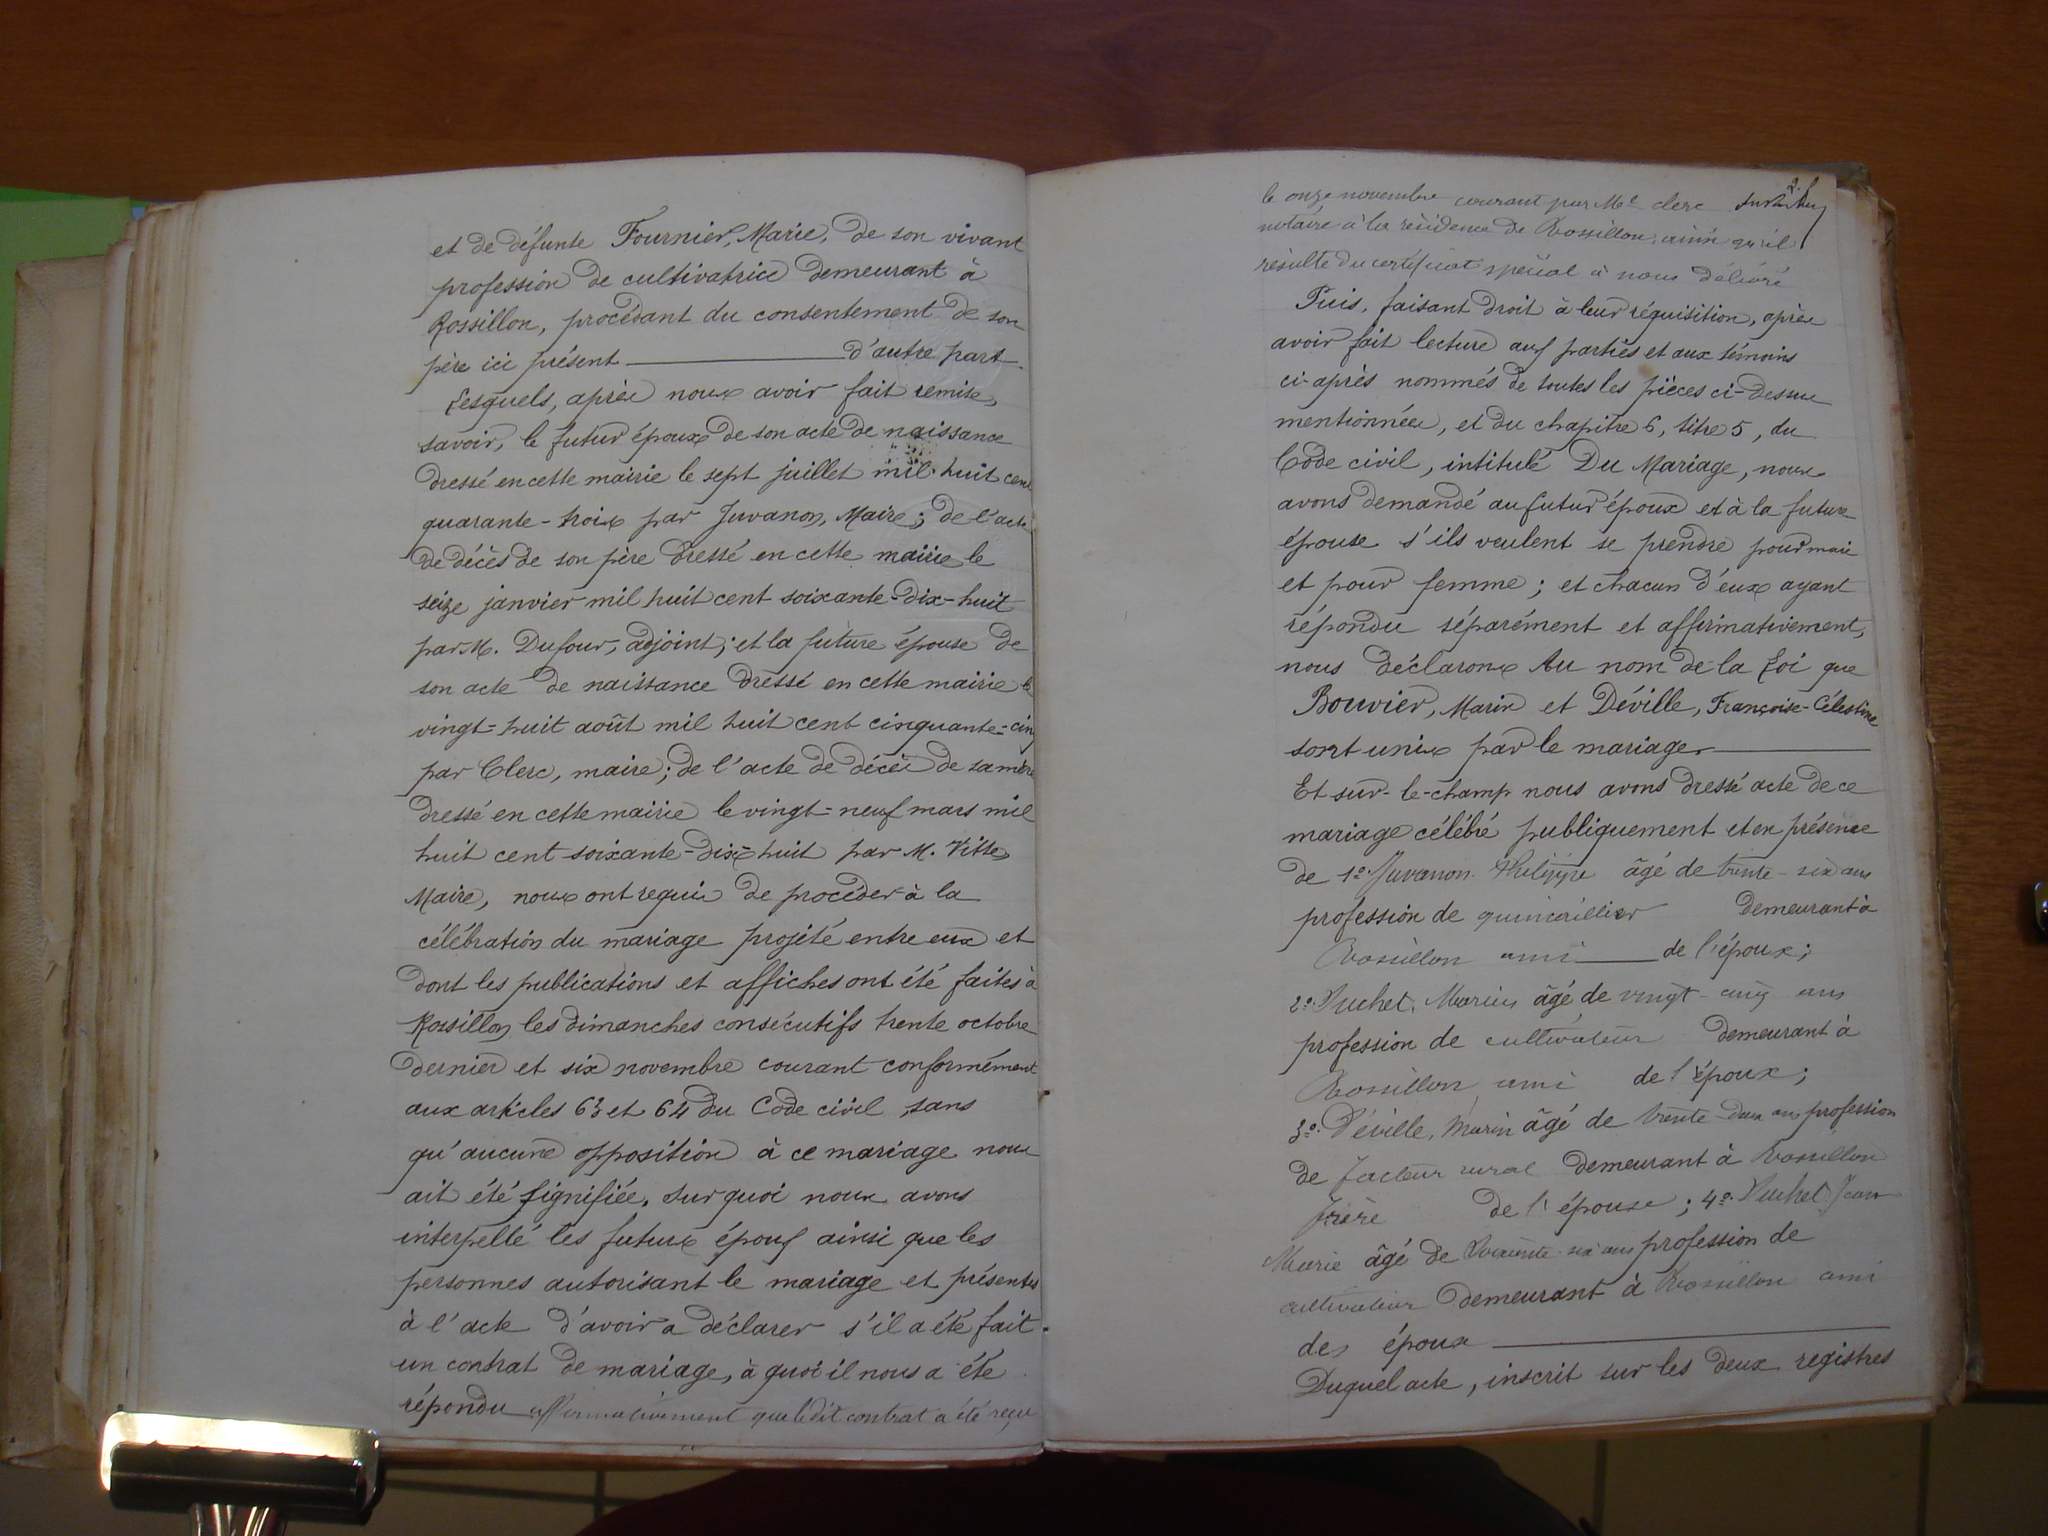 et de défunte Fournier, Marie, de son vivant
profession de cultivatrice demeurant à
Rossillon, procédant du consentement de son
père ici présent d'autre part
Lesquels, après nous avoir fait remise,
savoir, le futur époux de son acte de naissance
dressé en cette mairie le sept juillet mil huit cent
quarante-trois par Juvanon, Maire; de l'acte
de décès de son père dressé en cette mairie le
seize janvier mil huit cent soixante-dix-huit
par M. Dufour, adjoint; et la future épouse de
son acte de naissance dressé en cette mairie le
vingt-huit août mil huit cent cinquante-cinq
par Clerc, maire; de l'acte de décès de sa mère
dressé en cette mairie le vingt-neuf mars mil
huit cent soixante-dix-huit par M. Vitte,
Maire, nous ont requis de procéder à la
célébration du mariage projeté entre eux et
dont les publications et affiches ont été faites à
Rossillon, les dimanches consécutifs trente octobre
dernier et six novembre courant conformément
aux articles 63 et 64 du Code civil, sans
qu'aucune opposition à ce mariage nous
ait été signifiée. Sur quoi nous avons
interpellé les futurs époux ainsi que les
personnes autorisant le mariage et présentes
à l'acte d'avoir a déclarer s'il a été fait
un contrat de mariage, à quoi il nous a été
répondu affirmativement que ledit contrat a été reçu
le onze novembre courant par Me clerc
notaire à la résidence de Rossillon, ainsi qu'il
résulte du certificat spécial à nous délivré
Puis, faisant droit à leur réquisition, après
avoir fait lecture aux parties et aux témoins
ci-après nommés de toutes les pièces ci-dessus
mentionnées, et du chapitre 6, titre 5, du
Code civil, intitulé Du Mariage, nous
avons demandé au futur époux et à la future
épouse s'ils veulent se prendre pour mari
et pour femme; et chacun d'eux ayant
répondu séparément et affirmativement,
nous déclarons Au nom de la Loi que
Bouvier, Marin et Déville, Françoise-Célestine
sont unis par le mariage
Et sur-le-champ nous avons dressé acte de ce
mariage célébré publiquement et en présence
de 1º. Juvanon Philippe âgé de trente-six ans
profession de quincaillier demeurant à
Rossillon ami de l'époux;
2º. Vuchet, Marius âgé de vingt-cinq ans
profession de cultivateur demeurant à
Rossillon ami de l'époux;
3º. Déville, Marin âgé de trente-deux ans profession
de facteur rural demeurant à Rossillon
frère de l'épouse; 4º. Vuchet Jean
Marie âgé de soixante-six ans profession de
cultivateur demeurant à Rossillon ami
des époux
Duquel acte, inscrit sur les deux registres